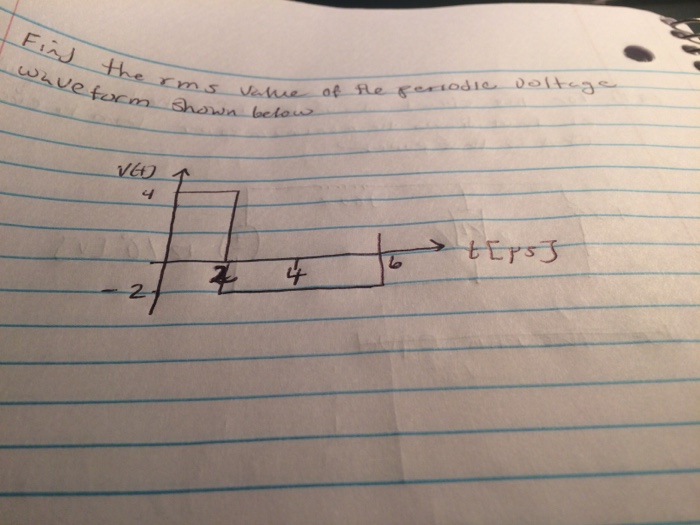 Find the rms value of the periodic voltage
waveform shown below
V(t)
4
2
4
6
t[μs]
-2